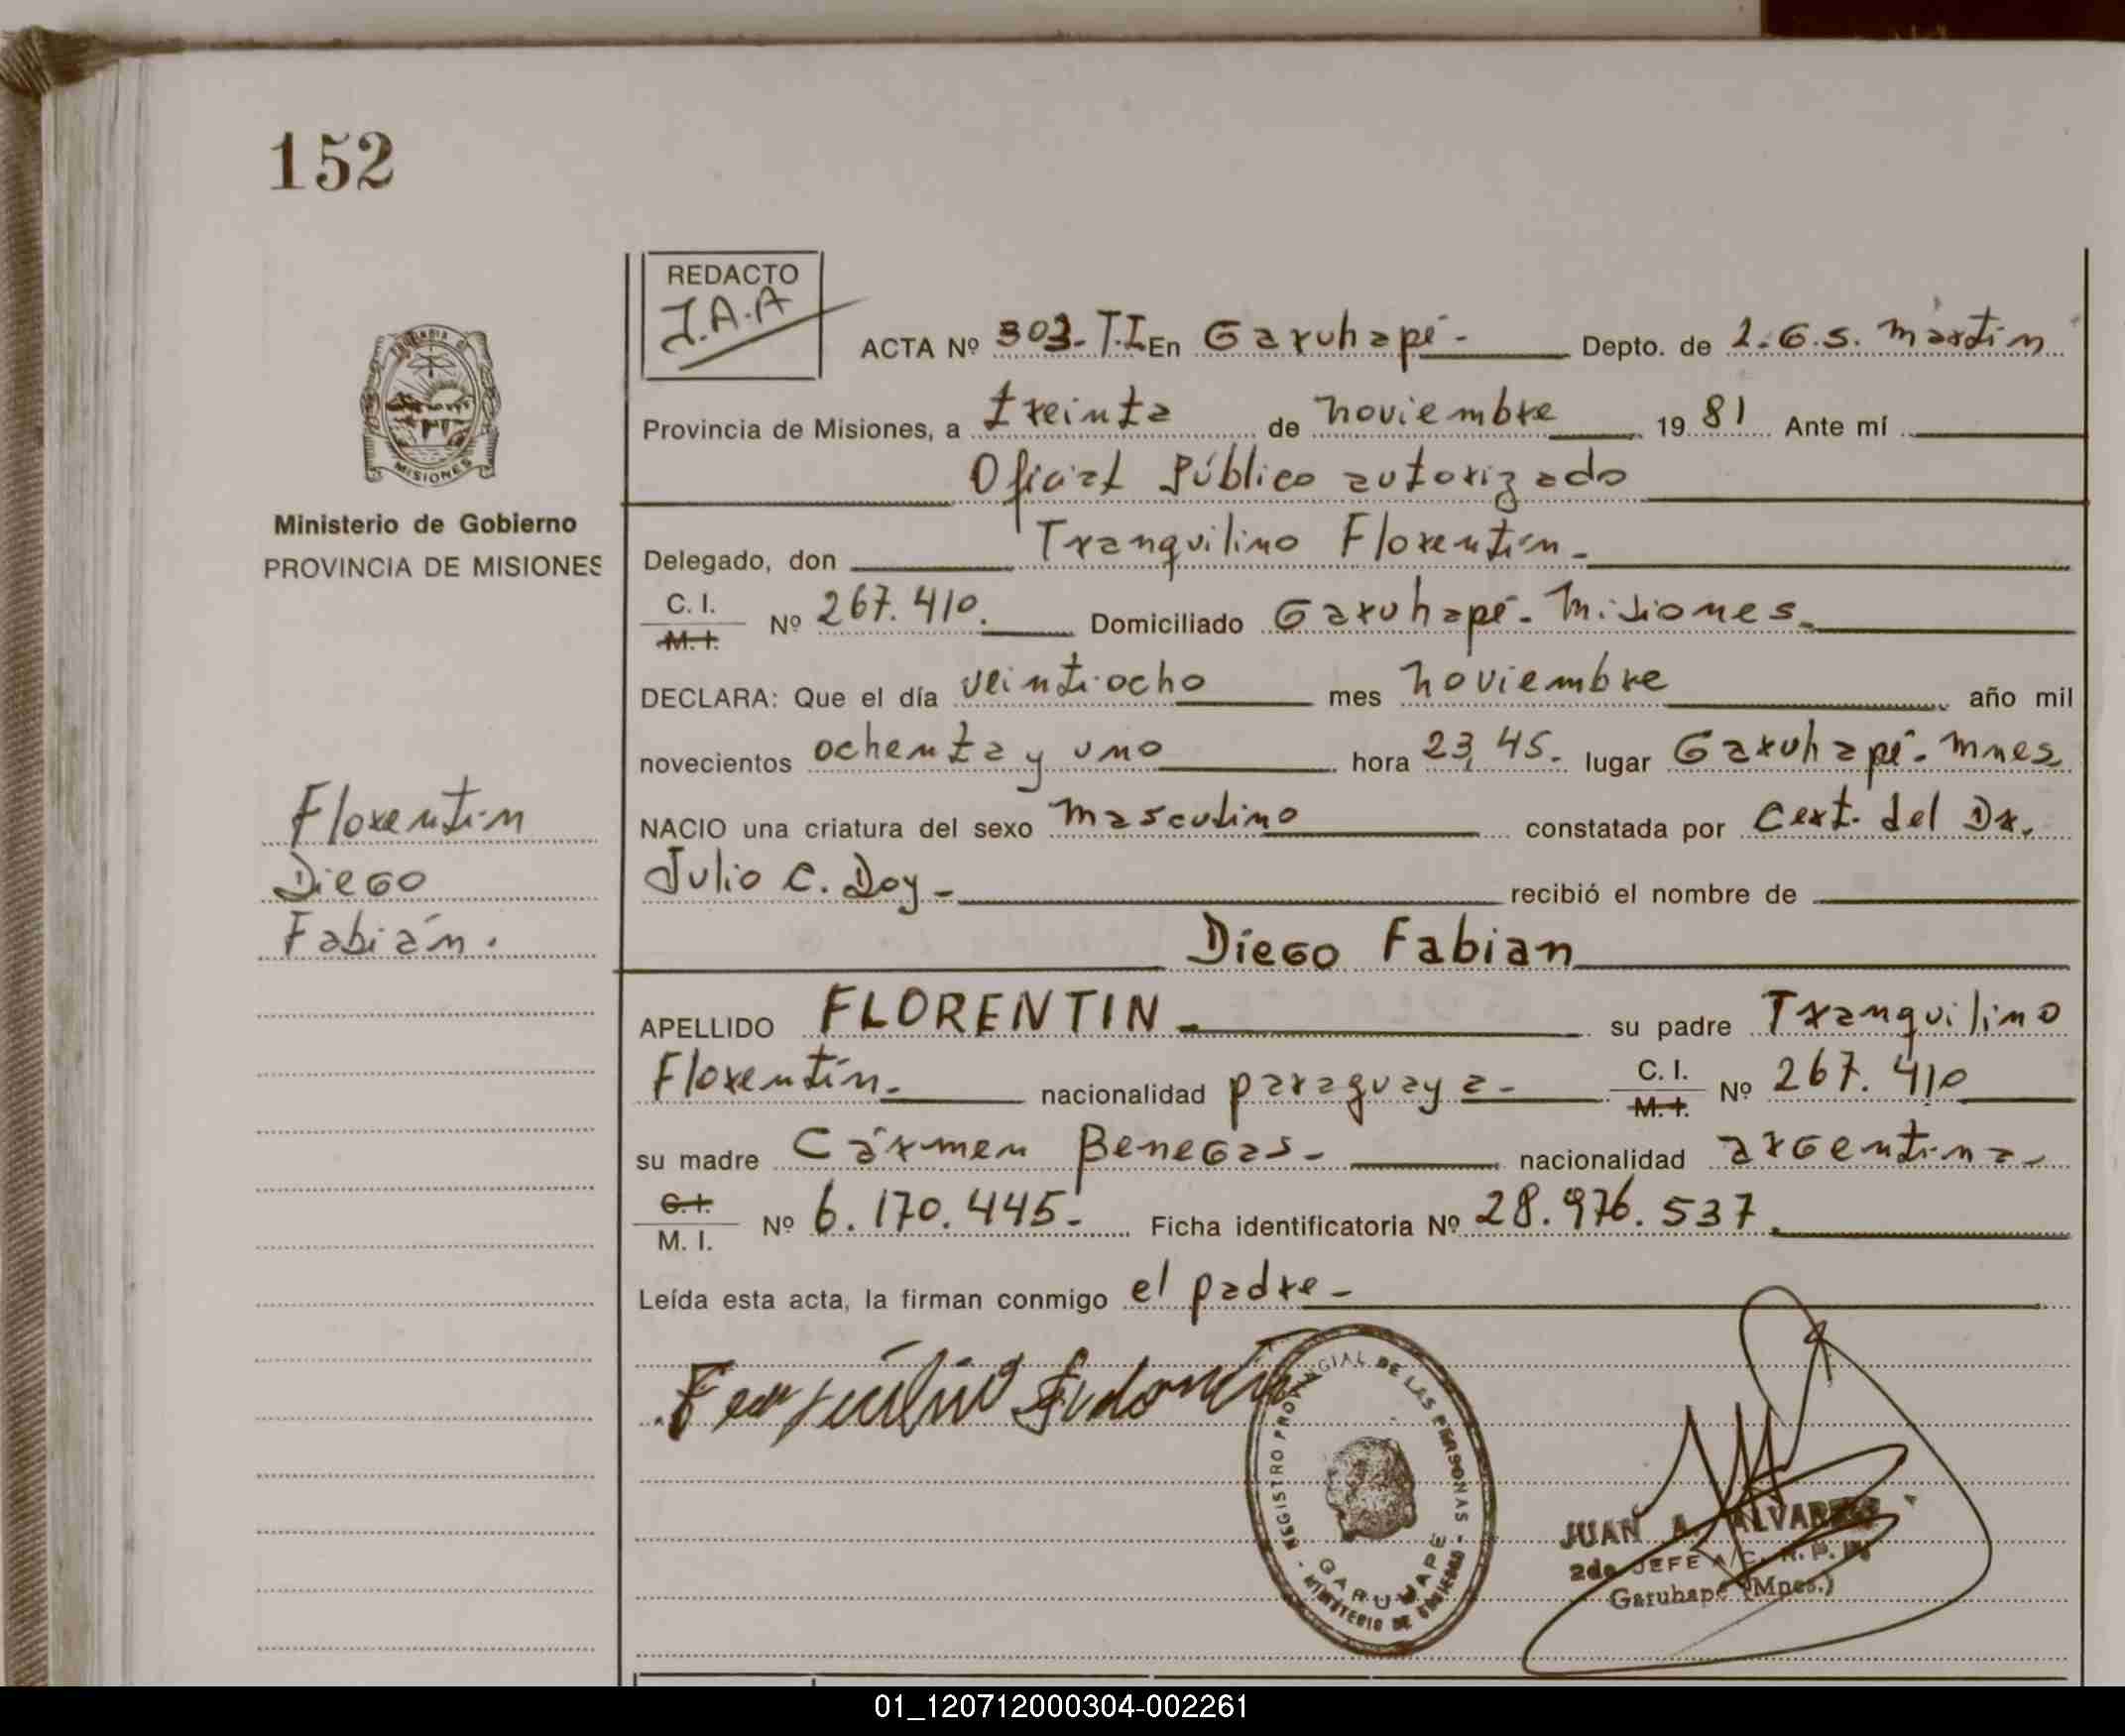 152
REDACTO
J.A.A
ACTA Nº 303-T.I En Garuhapé- Depto. de L.G.S. Martín
Provincia de Misiones, a treinta de noviembre 1981 Ante mí
Oficial Público autorizado
Ministerio de Gobierno
PROVINCIA DE MISIONES
Delegado, don Tranquilino Florentín-
C. I. M. I. Nº 267.410. Domiciliado Garuhapé- Misiones-
DECLARA: Que el día veintiocho mes noviembre año mil
novecientos ochenta y uno hora 23,45- lugar Garuhapé- Mnes
NACIO una criatura del sexo masculino constatada por Cert. del Dr.
Julio C. Doy- recibió el nombre de
Diego Fabian
Florentin
Diego
Fabián.
APELLIDO FLORENTIN- su padre Tranquilino
Florentín- nacionalidad paraguaya- C. I. M. I. Nº 267.410
su madre Cármen Benegas- nacionalidad argentina-
C. I. M. I. Nº 6.170.445- Ficha identificatoria Nº 28.976.537.
Leída esta acta, la firman conmigo el padre-
REGISTRO PROVINCIAL DE LAS PERSONAS
GARUHAPE
MINISTERIO DE GOBIERNO
JUAN A. ALVAREZ
2do JEFE A/C. R. P.
Garuhapé (Mnes.)
MISIONES
01_120712000304-002261